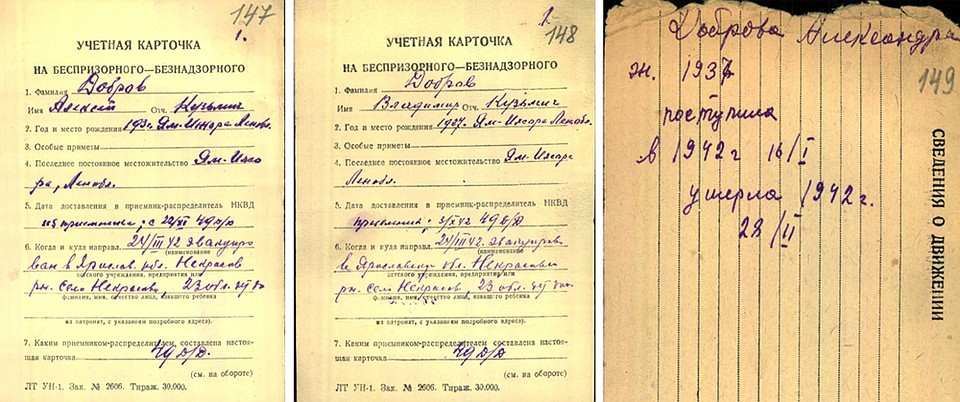 147
1.
УЧЕТНАЯ КАРТОЧКА
НА БЕСПРИЗОРНОГО—БЕЗНАДЗОРНОГО
1. Фамилия Добров
Имя Алексей Отч. Кузьмич
2. Год и место рождения
3. Особые приметы
4. Последнее постоянное местожительство Ям-Ижо
ра, Ленобл.
5. Дата доставления в приемник-распределитель НКВД
49 д/д
6. Когда и куда направл. 24/III 42 эвакуиро
(наименование
ван в Яросл. обл. Некрасов
детского учреждения, предприятия или
рн. село Некрасов, 23 обл. дет до
фамилия, имя, отчество лица, взявшего ребенка
на патронат, с указанием подробного адреса).
7. Каким приемником-распределителем составлена настоя-
щая карточка 49 Д/Д.
(см. на обороте)
ЛТ УН-1. Зак. № 2606. Тираж. 30.000.
1.
148
УЧЕТНАЯ КАРТОЧКА
НА БЕСПРИЗОРНОГО—БЕЗНАДЗОРНОГО
1. Фамилия Добров
Имя Владимир Отч. Кузьмич
2. Год и место рождения 1927. Ям-Ижора Ленобл.
3. Особые приметы
4. Последнее постоянное местожительство Ям-Ижора
Ленобл.
5. Дата доставления в приемник-распределитель НКВД
49 д/д
6. Когда и куда направл. 24/III 42. эвакуирован
(наименование
в Ярославск. обл. Некрасовск
детского учреждения, предприятия или
рн. село Некрасов, 23 обл. дет дом
фамилия, имя, отчество лица, взявшего ребенка
на патронат, с указанием подробного адреса).
7. Каким приемником-распределителем составлена настоя-
щая карточка 49 Д/Д
(см. на обороте)
ЛТ УН-1. Зак. № 2606. Тираж. 30.000.
Доброва Александра
149
поступила
в 1942 г 16/I
умерла 1942 г.
28/II
СВЕДЕНИЯ О ДВИЖЕНИИ